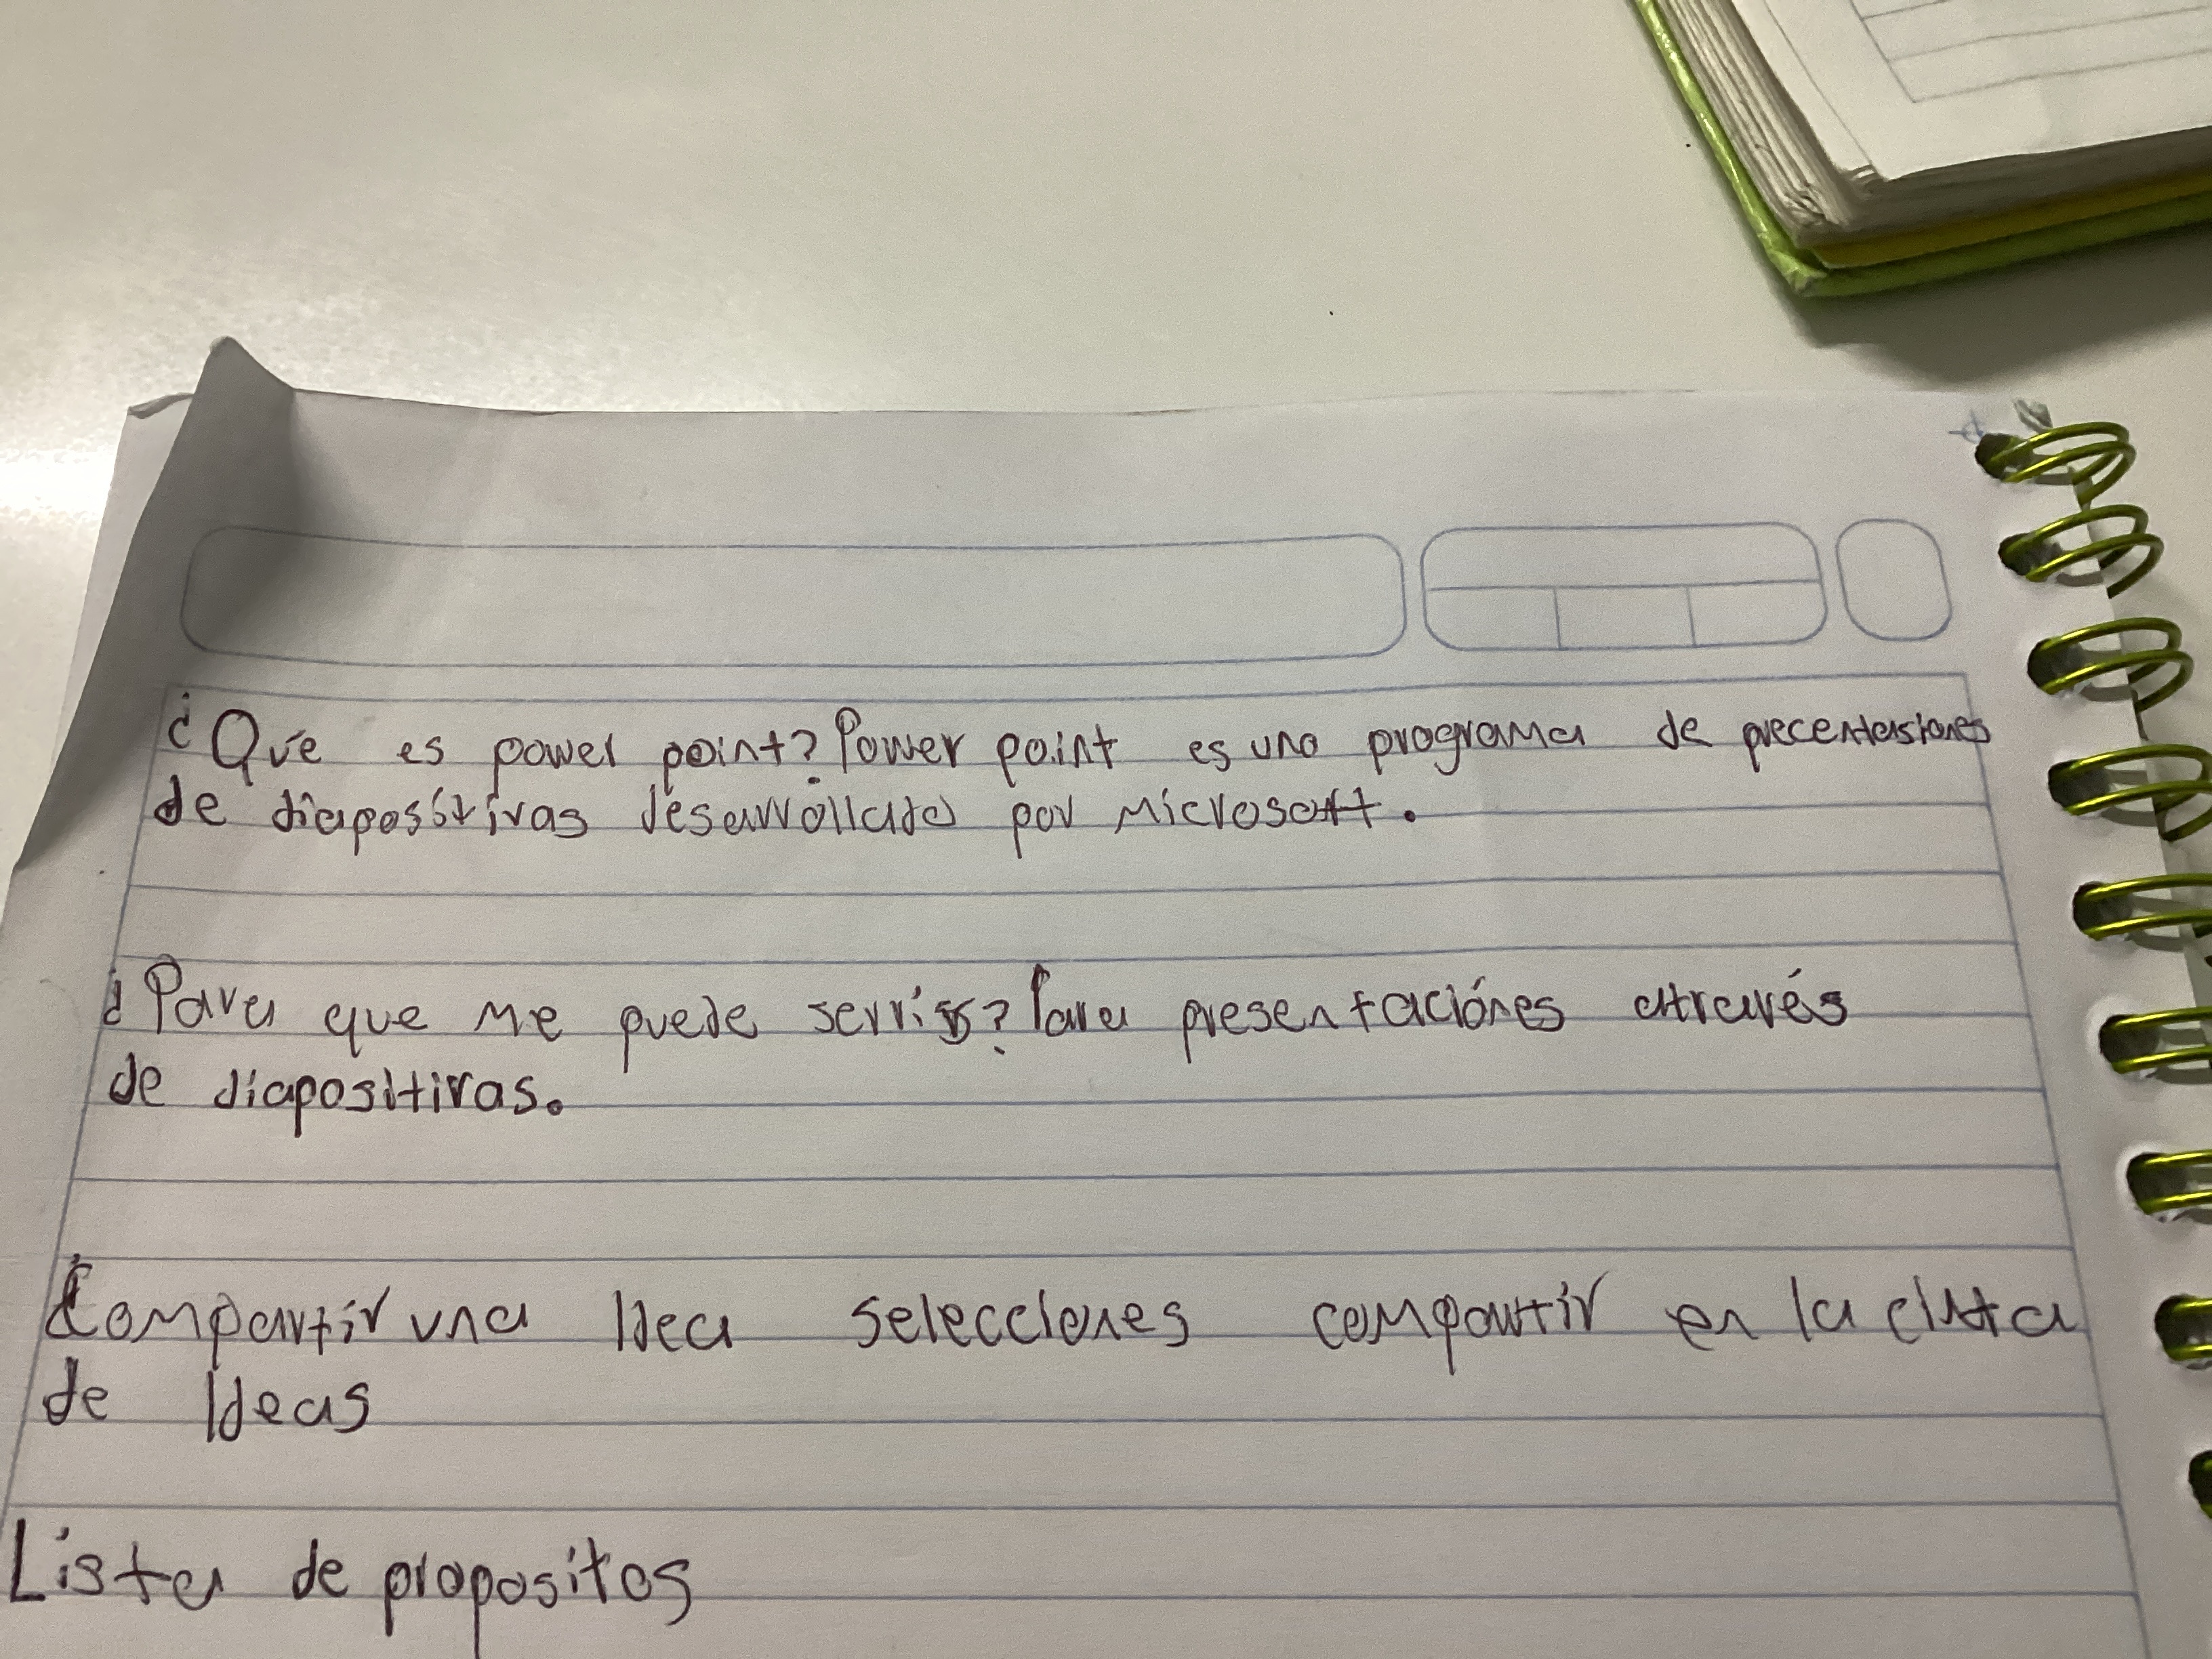 ¿Qúe es power point? Power point es uno programa de precentasiones
de diapositivas desarrollado por Microsoft.
¿Para que me puede servir? Para presentaciónes através
de diapositivas.
Compartir una Idea selecciones compartir en la cinta
de Ideas
Lista de propositos